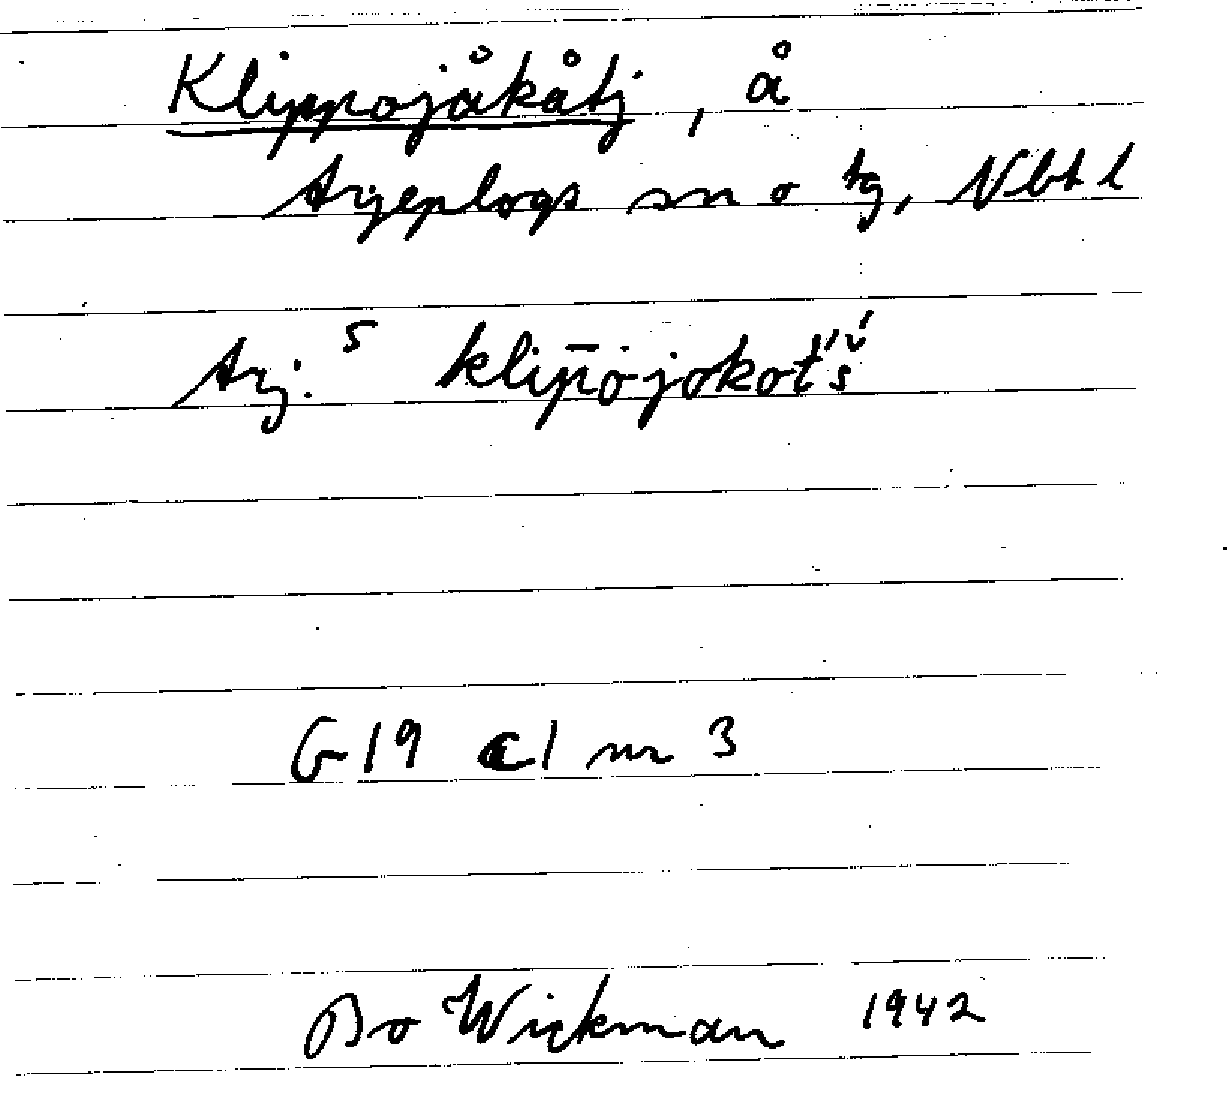 Klippojåkåtj, å
Arjeplogs sn o tg, Nbt l
Arj. S klip̄ȯjokot́š́
G19 c1 nr 3
Bo Wickman 1942